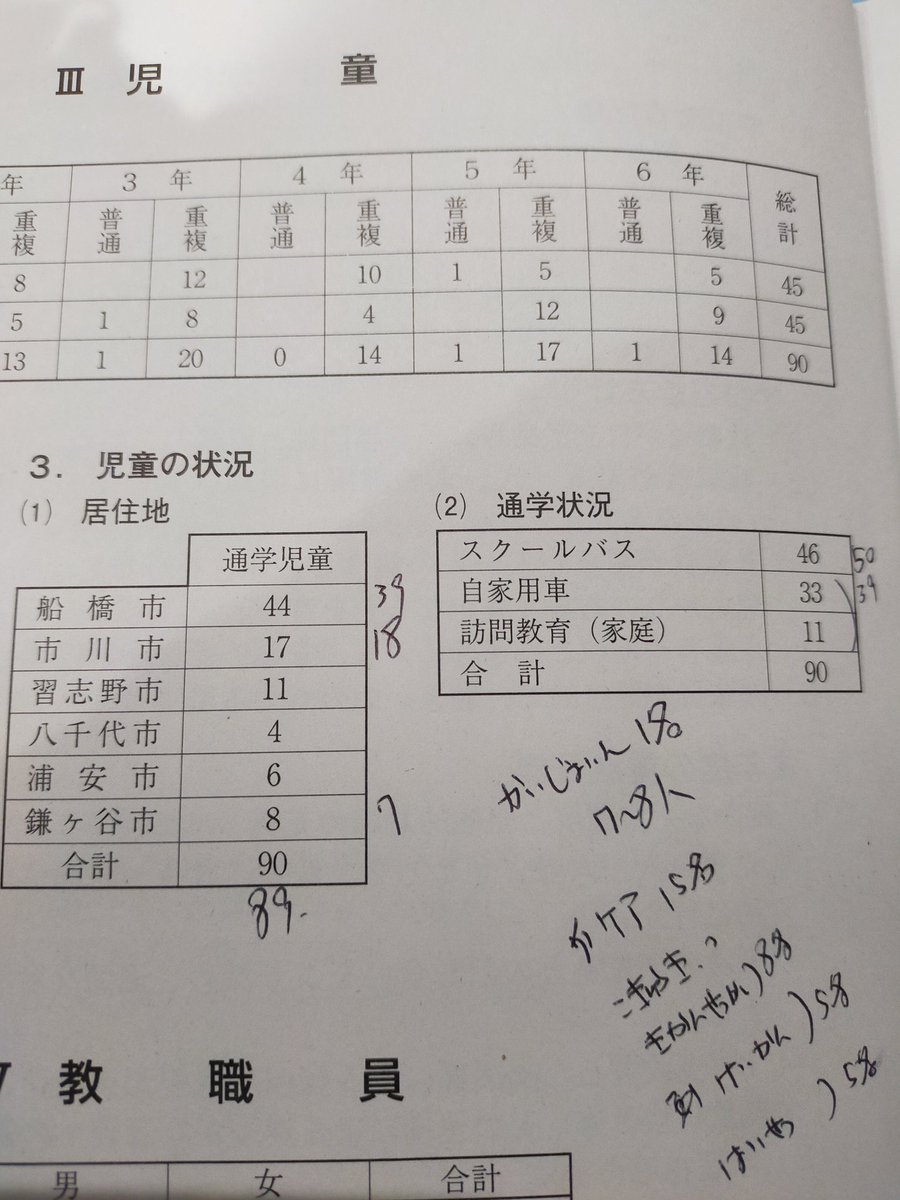 Ⅲ 児 童
年 3 年 4 年 5 年 6 年 総計
重複 普通 重複 普通 重複 普通 重複 普通 重複
8 12 10 1 5 5 45
5 1 8 4 12 9 45
13 1 20 0 14 1 17 1 14 90
3. 児童の状況
(1) 居住地
通学児童
船橋市 44 39
市川市 17 18
習志野市 11
八千代市 4
浦安市 6
鎌ヶ谷市 8 7
合計 90
89.
(2) 通学状況
スクールバス 46 50
自家用車 33 39
訪問教育(家庭) 11
合計 90
1名
7~8人
ケア 15名
8名
5名
5名
教職員
男 女 合計